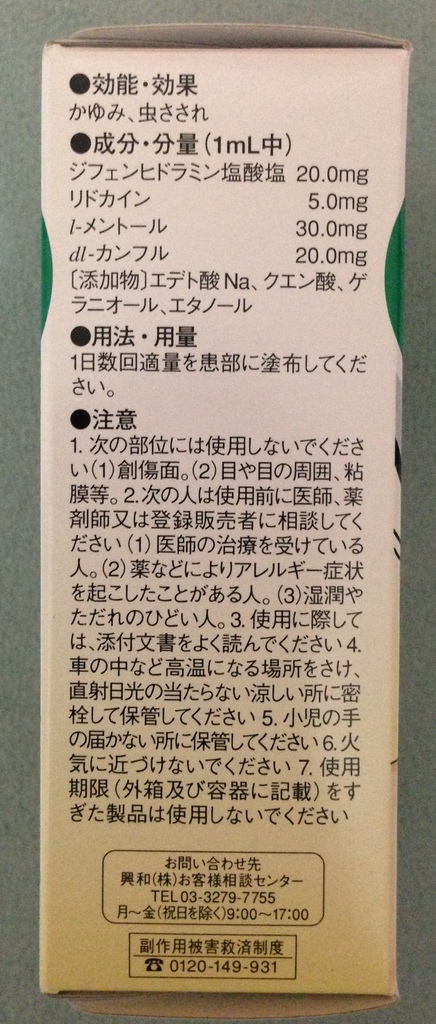 ●効能・効果
かゆみ、虫さされ
●成分・分量(1mL中)
ジフェンヒドラミン塩酸塩 20.0mg
リドカイン 5.0mg
l-メントール 30.0mg
dl-カンフル 20.0mg
〔添加物〕エデト酸Na、クエン酸、ゲ
ラニオール、エタノール
●用法・用量
1日数回適量を患部に塗布してくだ
さい。
●注意
1. 次の部位には使用しないでくださ
い(1)創傷面。(2)目や目の周囲、粘
膜等。2.次の人は使用前に医師、薬
剤師又は登録販売者に相談してく
ださい(1)医師の治療を受けている
人。(2)薬などによりアレルギー症状
を起こしたことがある人。(3)湿潤や
ただれのひどい人。3. 使用に際して
は、添付文書をよく読んでください 4.
車の中など高温になる場所をさけ、
直射日光の当たらない涼しい所に密
栓して保管してください 5. 小児の手
の届かない所に保管してください 6. 火
気に近づけないでください 7. 使用
期限(外箱及び容器に記載)をす
ぎた製品は使用しないでください
お問い合わせ先
興和(株)お客様相談センター
TEL03-3279-7755
月~金(祝日を除く)9:00~17:00
副作用被害救済制度
☎ 0120-149-931